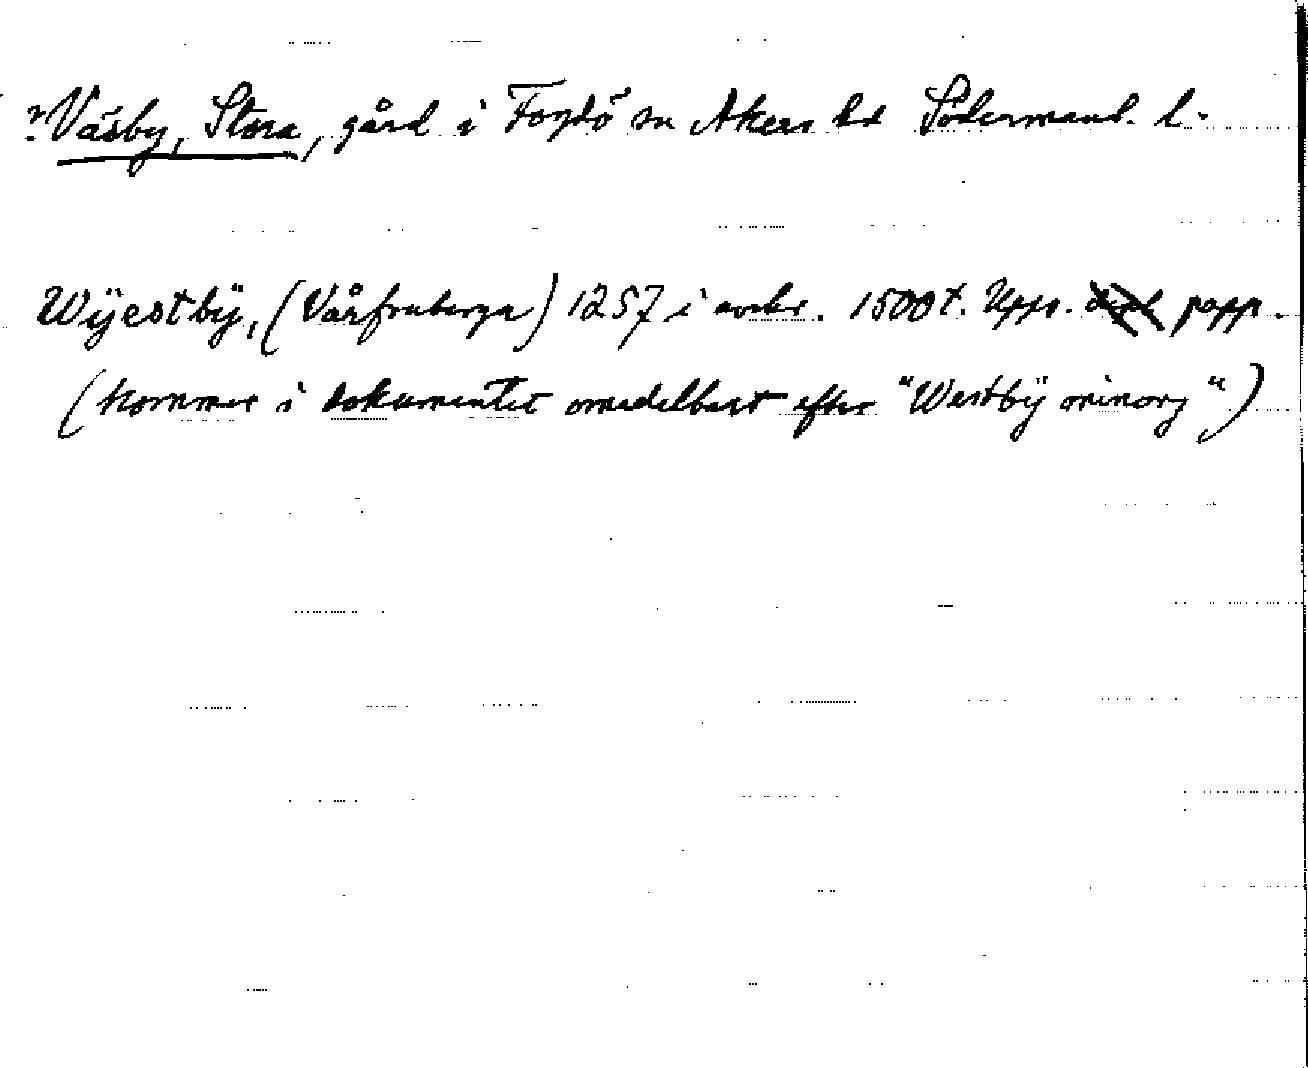 ?Väsby, Stora, gård i Fogdö sn Åkers hd Södermanl. l.
Wÿestbÿ, (Vårfruberga) 1257 i avskr. 1500t. Upps. papp.
(kommer i dokumentet omedelbart efter "Westbÿ minorj")